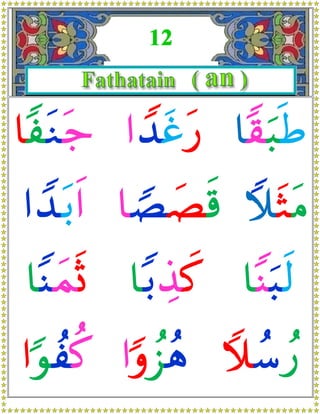 12
Fathatain ( an )
طَبَقًا رَغَدًا جَنَفًا
مَثَلًا قَصَصًا اَبَدًا
لَبَنًا كَذِبًا ثَمَنًا
رُسُلًا هُزُوًا كُفُوًا